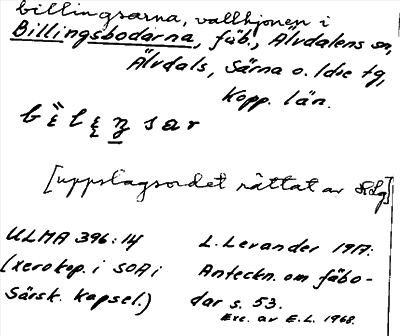 billingsarna, vallhjonen i
Billingsbodarna, fäb., Älvdalens sn,
Älvdals, Särna o. Idre tg,
Kopp. län.
[uppslagsordet rättat av
ULMA 396:14
(xerokop. i SOA i
Särsk. kapsel.)
L. Levander 1917:
Anteckn. om fäbo-
dar s. 53.
Exc. av E.L. 1968.